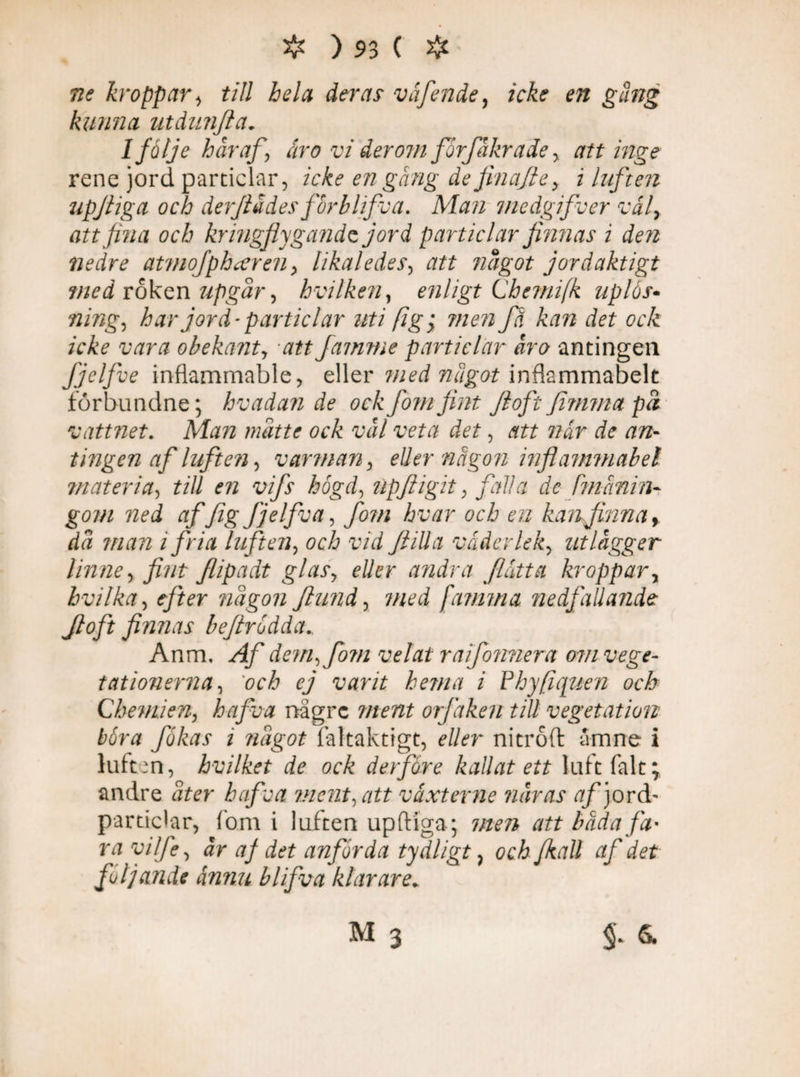 ☆ ) 93 ( ☆
ne kroppar, till hela deras våſende, icke en gång
kunna utdunſta.
I följe håraf, åro vi derom förſåkrade, att inge
rene jord particlar, icke en gång de finaſte, i luften
upſtiga och derſtådes förblifva. Man medgifver vål,
att fina och kringflygande jord particlar finnas i den
nedre atmoſphæren, likaledes, att något jordaktigt
med röken upgår, hvilken, enligt Chemiſk uplös-
ning, har jord-particlar uti ſig; men ſå kan det ock
icke vara obekant, att ſamme particlar åro antingen
ſjelfve inflammable, eller med något inflammabelt
förbundne; hvadan de ock ſom fint ſtoft ſimma på
vattnet. Man måtte ock vål veta det, att når de an-
tingen af luften, varman, eller någon inflammabel
materia, till en viſs högd, upſtigit, falla de ſmånin-
gom ned af ſig ſjelfva, ſom hvar och en kan finna,
då man i fria luften, och vid ſtilla våderlek, utlågger
linne, fint ſlipadt glas, eller andra ſlåtta kroppar,
hvilka, efter någon ſtund, med ſamma nedfallande
ſtoft finnas beſtrödda.
Anm. Af dem, ſom velat raiſonnera om vege-
tationerna, och ej varit hema i Phyſiquen och
Chemien, hafva någre ment orſaken till vegetation
böra ſökas i något ſaltaktigt, eller nitröſt åmne i
luften, hvilket de ock derföre kallat ett luft ſalt;
andre åter hafva ment, att våxterne nåras af jord-
particlar, ſom i luften upſtiga; men att båda fa-
ra vilſe, år af det anförda tydligt, och ſkall af det
följande ånnu blifva klarare.
M 3 §. 6.